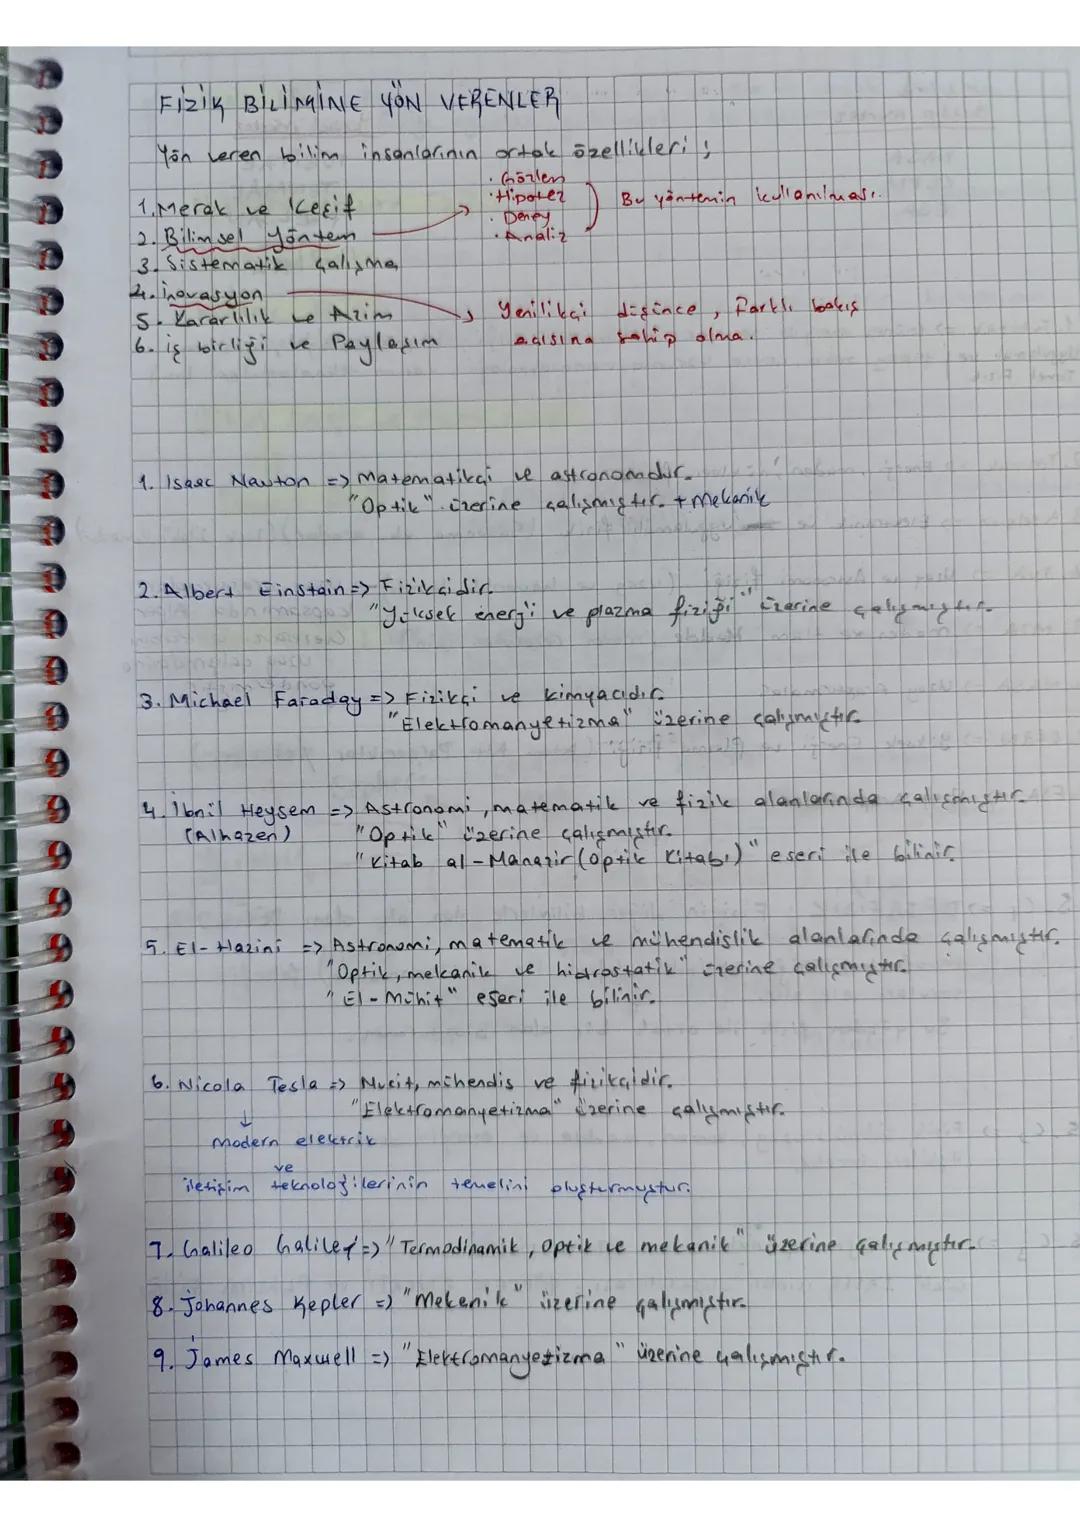 FİZİK BİLİMİNE YÖN VERENLER
Yön veren bilim insanlarının ortak özellikleri ;
1. Merak ve Keşif
2. Bilimsel Yöntem
• Gözlem
• Hipotez
• Deney
• Analiz
Bu yöntemin kullanılması.
3. Sistematik çalışma
4. İnovasyon
Yenilikçi düşünce, farklı bakış
açısına sahip olma.
5. Kararlılık ve Azim
6. iş birliği ve Paylaşım
1. Isaac Newton => Matematikçi ve astronomdur.
"Optik" üzerine çalışmıştır. + Mekanik
2. Albert Einstain => Fizikçidir.
"Yüksek enerji ve plazma fiziği" üzerine çalışmıştır.
3. Michael Faraday => Fizikçi ve kimyacıdır.
"Elektromanyetizma" üzerine çalışmıştır.
4. İbnil Heysem => Astronomi, matematik ve fizik alanlarında çalışmıştır.
(Alhazen)
"Optik" üzerine çalışmıştır.
"Kitab al-Manazir (Optik Kitabı)" eseri ile bilinir.
5. El-Hazini => Astronomi, matematik ve mühendislik alanlarında çalışmıştır.
"Optik, mekanik ve hidrostatik" üzerine çalışmıştır.
"El-Mühit" eseri ile bilinir.
6. Nicola Tesla => Mucit, mühendis ve fizikçidir.
"Elektromanyetizma" üzerine çalışmıştır.
↓
modern elektrik
ve
iletişim teknolojilerinin temelini oluşturmuştur.
7. Galileo Galilei => "Termodinamik, optik ve mekanik" üzerine çalışmıştır.
8. Johannes Kepler => "Mekenik" üzerine çalışmıştır.
9. James Maxwell => "Elektromanyetizma" üzerine çalışmıştır.